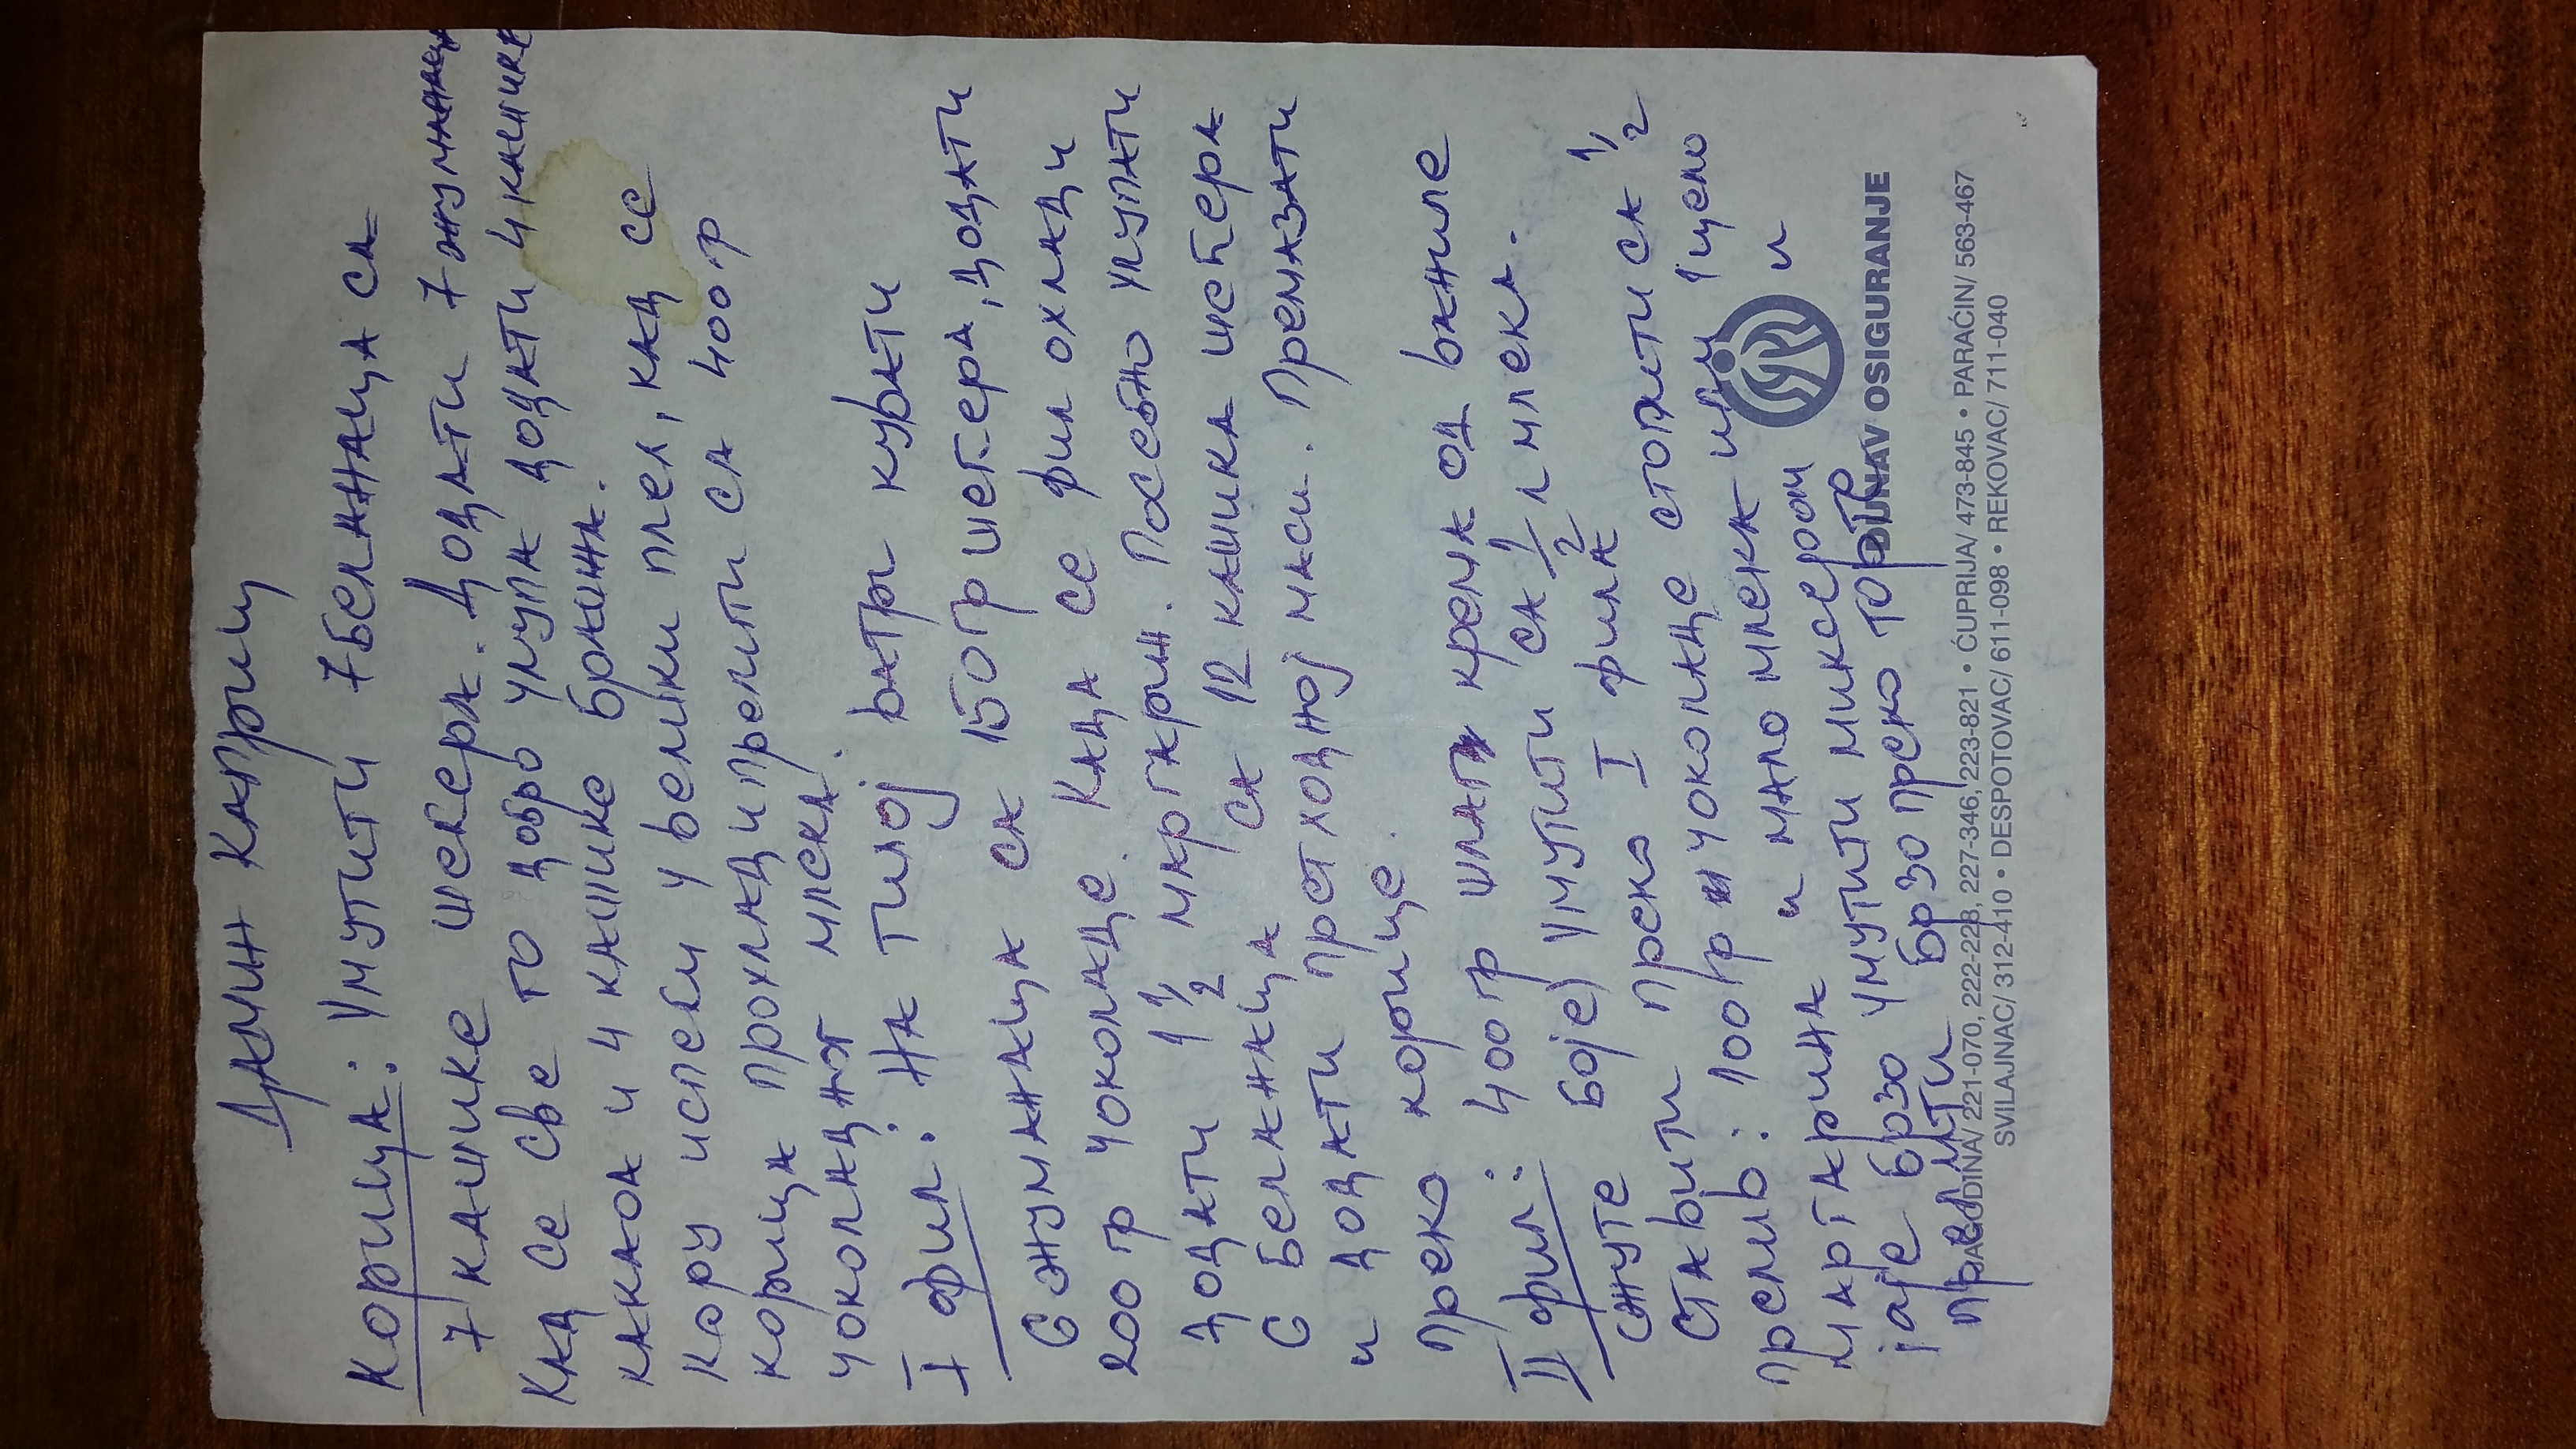 Дамин Каприц
Корица: Умутити 7 беланаца са
7 кашике шећера. Додати 7 жуманаца
Кад се све то добро улупа додати 4 кашике
какаоа и 4 кашике брашна.
Кору испећи у велики плех, кад се
корица прохлади прелити са 400 гр
чоколадног млека.
I фил: На тихој ватри кувати
6 жуманаца са 150 гр шећера, додати
200 гр чоколаде. Када се фил охлади
додати 1 1/2 маргарин. Посебно улупати
6 беланаца са 12 кашика шећера
и додати претходној маси. Премазати
преко корице.
II фил: 400 гр шлаг крема од ваниле
(жуте боје) умутити са 1/2 л млека.
Ставити преко I фила
Прелив: 100 гр чоколаде стопити са 1/2
маргарина и мало млека или 1 цело
јаје брзо умутити миксером и
прелити брзо преко торте
DUNAV OSIGURANJE
JAGODINA/ 221-070, 222-223, 227-346, 223-821 • ĆUPRIJA/ 473-845 • PARAĆIN/ 563-467
SVILAJNAC/ 312-410 • DESPOTOVAC/ 611-098 • REKOVAC/ 711-040